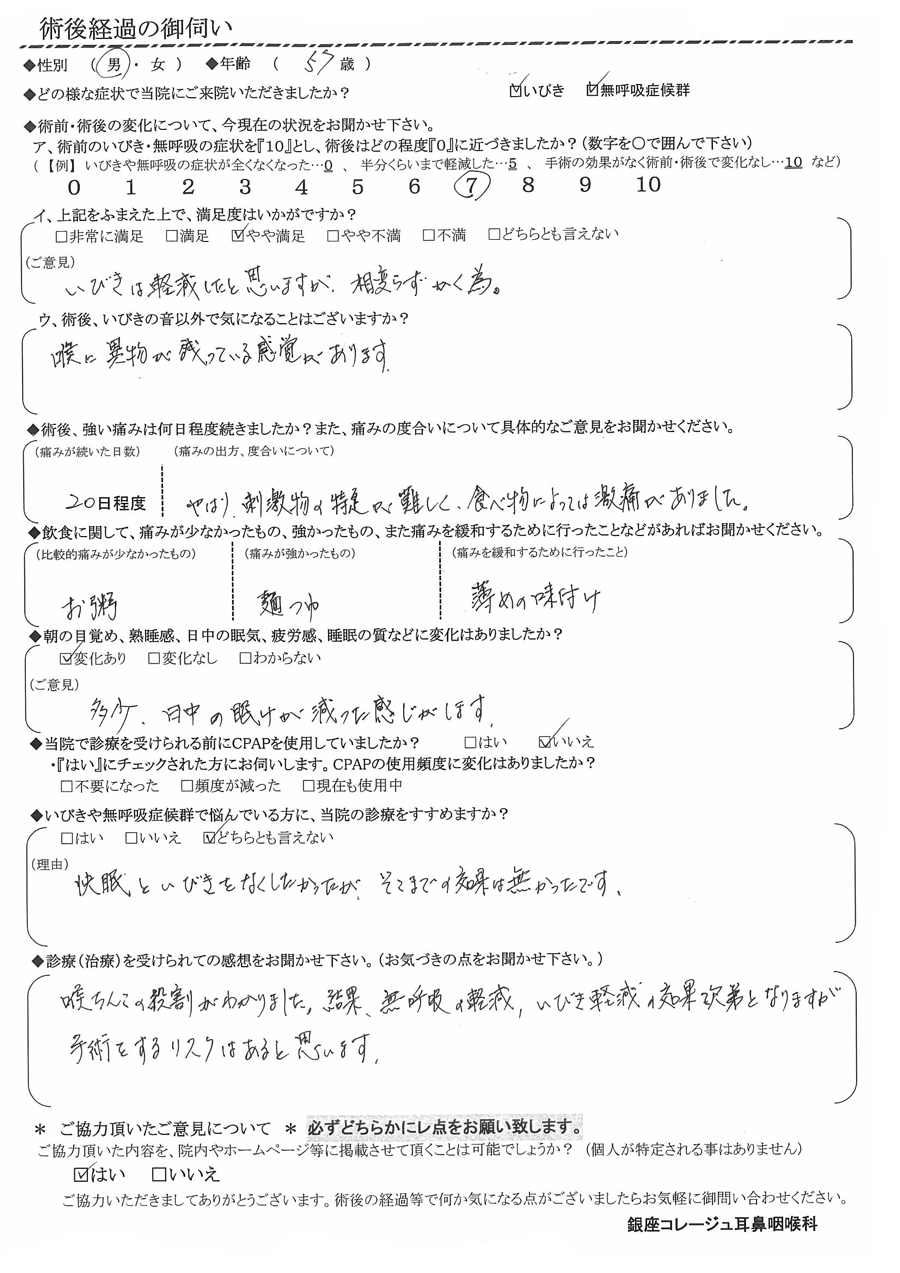 術後経過の御伺い
◆性別 ( 男 ・ 女 ) ◆年齢 ( 57 歳 )
◆どの様な症状で当院にご来院いただきましたか? ☑いびき ☑無呼吸症候群
◆術前・術後の変化について、今現在の状況をお聞かせ下さい。
ア、術前のいびき・無呼吸の症状を『10』とし、術後はどの程度『0』に近づきましたか?(数字を○で囲んで下さい)
(【例】 いびきや無呼吸の症状が全くなくなった…0 、 半分くらいまで軽減した…5 、 手術の効果がなく術前・術後で変化なし…10 など)
0 1 2 3 4 5 6 7 8 9 10
イ、上記をふまえた上で、満足度はいかがですか?
□非常に満足 □満足 ☑やや満足 □やや不満 □不満 □どちらとも言えない
(ご意見)
いびきは軽減したと思いますが、相変らずかく為。
ウ、術後、いびきの音以外で気になることはございますか?
喉に異物が残っている感覚があります。
◆術後、強い痛みは何日程度続きましたか?また、痛みの度合いについて具体的なご意見をお聞かせください。
(痛みが続いた日数) (痛みの出方、度合いについて)
20日程度 やはり、刺激物の特定が難しく、食べ物によっては激痛がありました。
◆飲食に関して、痛みが少なかったもの、強かったもの、また痛みを緩和するために行ったことなどがあればお聞かせください。
(比較的痛みが少なかったもの) (痛みが強かったもの) (痛みを緩和するために行ったこと)
お粥 麺つゆ 薄めの味付け
◆朝の目覚め、熟睡感、日中の眠気、疲労感、睡眠の質などに変化はありましたか?
☑変化あり □変化なし □わからない
(ご意見)
多少、日中の眠けが減った感じがします。
◆当院で診療を受けられる前にCPAPを使用していましたか? □はい ☑いいえ
・『はい』にチェックされた方にお伺いします。CPAPの使用頻度に変化はありましたか?
□不要になった □頻度が減った □現在も使用中
◆いびきや無呼吸症候群で悩んでいる方に、当院の診療をすすめますか?
□はい □いいえ ☑どちらとも言えない
(理由)
快眠といびきをなくしたかったが、そこまでの効果は無かったです。
◆診療(治療)を受けられての感想をお聞かせ下さい。(お気づきの点をお聞かせ下さい。)
喉ちんこの役割がわかりました。結果、無呼吸の軽減、いびき軽減の効果次第となりますが
手術をするリスクはあると思います。
* ご協力頂いたご意見について * 必ずどちらかにレ点をお願い致します。
ご協力頂いた内容を、院内やホームページ等に掲載させて頂くことは可能でしょうか? (個人が特定される事はありません)
☑はい □いいえ
ご協力いただきましてありがとうございます。術後の経過等で何か気になる点がございましたらお気軽に御問い合わせください。
銀座コレージュ耳鼻咽喉科